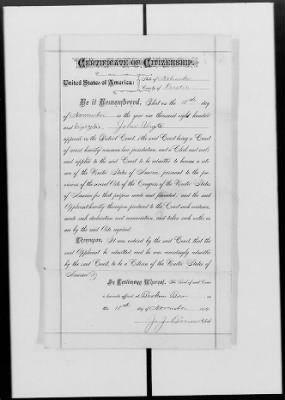 CERTIFICATE OF CITIZENSHIP.
United States of America: State of Nebraska
County of
Be it Remembered, That on the 10th day
of November in the year one thousand eight hundred
and John
appeared in the District Court, (the said Court being a Court
of record, having common law jurisdiction, and a Clerk and seal)
and applied to the said Court to be admitted to become a citi-
zen of the United States of America, pursuant to the pro-
visions of the several Acts of the Congress of the United States
of America for that purpose made and provided; and the said
Applicant having thereupon produced to the Court such evidence,
made such declaration and renunciation, and taken such oaths as
are by the said Acts required.
Thereupon, It was ordered by the said Court, that the
said Applicant be admitted, and he was accordingly admitted
by the said Court, to be a Citizen of the United States of
America.
In Testimony Whereof, The Seal of said Court
is hereunto affixed at Broken Bow
this 10th day of November 18
Clerk